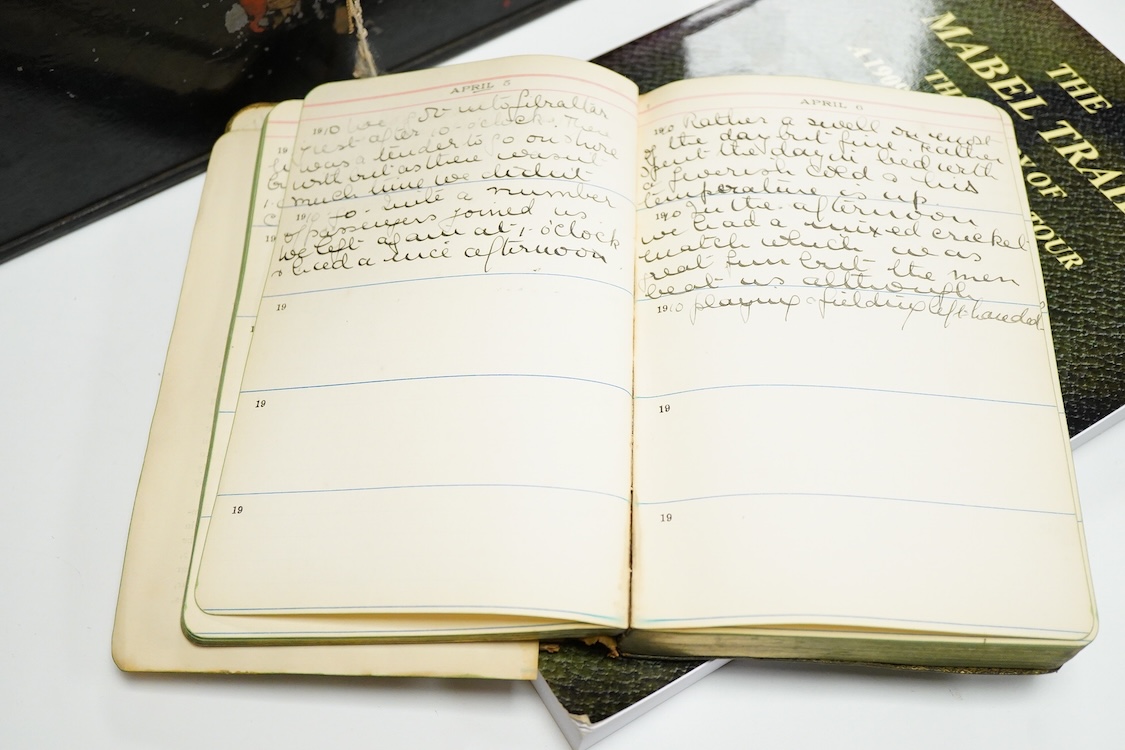 APRIL 5
1910 We got into Gibraltar
just after 10 o'clock. There
was a tender to go on shore
with but as there wasn't
much time we didn't
1910 go. Quite a number
of passengers joined us
we left again at 1 o'clock
& had a nice afternoon.
19
19
19
APRIL 6
1910 Rather a swell on most
of the day but fine. Father
spent the day in bed with
a feverish cold & his
temperature is up.
1910 In the afternoon
we had a mixed cricket
match which was
great fun but the men
beat us although
1910 playing & fielding left handed.
19
19
19
19
19
THE
MABEL TRAI
A 190
TH
Y OF
TOUR